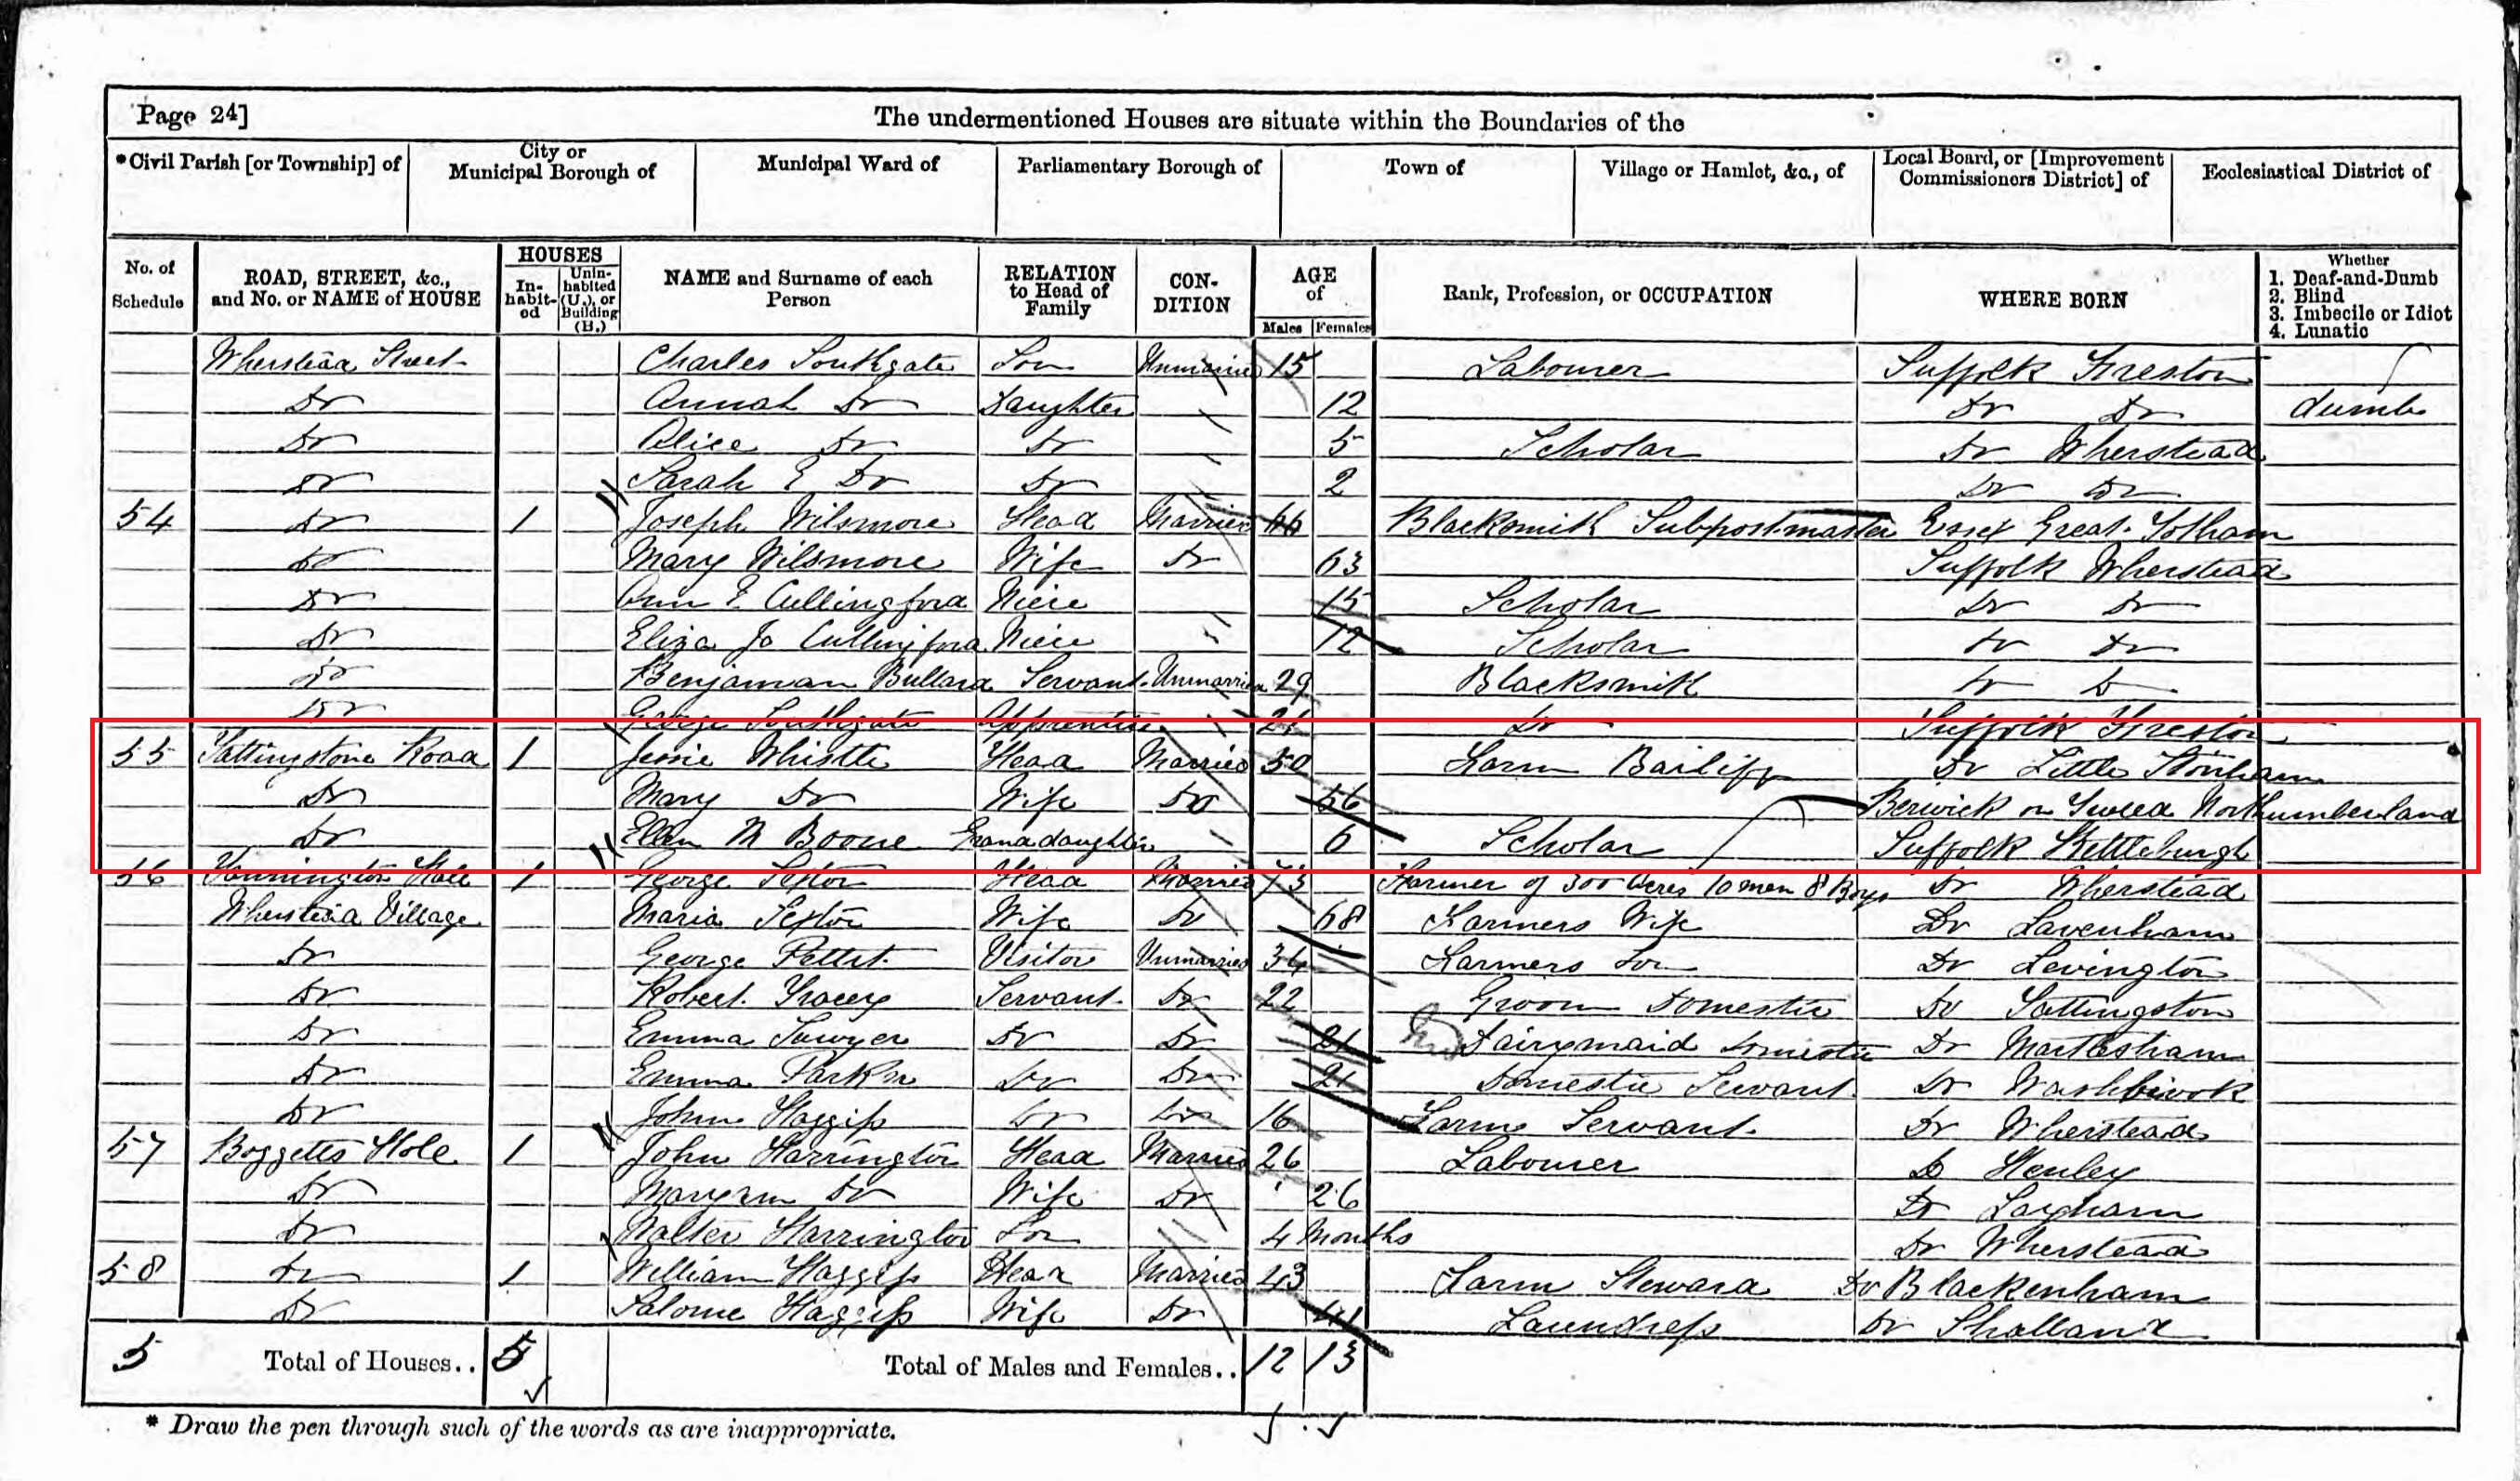 Page 24]
The undermentioned Houses are situate within the Boundaries of the
*Civil Parish [or Township] of
City or Municipal Borough of
Municipal Ward of
Parliamentary Borough of
Town of
Village or Hamlet, &c., of
Local Board, or [Improvement Commissioners District] of
Ecclesiastical District of
No. of Schedule
ROAD, STREET, &c., and No. or NAME of HOUSE
HOUSES
In-habit-ed
Unin-habited (U.), or Building (B.)
NAME and Surname of each Person
RELATION to Head of Family
CON-DITION
AGE of
Males Females
Rank, Profession, or OCCUPATION
WHERE BORN
Whether
1. Deaf-and-Dumb
2. Blind
3. Imbecile or Idiot
4. Lunatic
Wherstead Street Charles Southgate Son Unmarried 15 Labourer Suffolk Freston
Do Annah Do Daughter 12 Do Do dumb
Do Alice Do Do 5 Scholar Do Wherstead
Do Sarah E Do Do 2 Do Do
54 Do 1 Joseph Wilsmore Head Married 66 Blacksmith Subpostmaster Essex Great Totham
Do Mary Wilsmore Wife Do 63 Suffolk Wherstead
Do Ann Cullingford Niece 15 Scholar Do Do
Do Eliza Jo Cullingford Niece 12 Scholar Do Do
Do Benjaman Bullard Servant Unmarried 29 Blacksmith Do Do
Do George Southgate Apprentice 21 Do Suffolk Freston
55 Tattingstone Road 1 Jessie Whistle Head Married 50 Farm Bailiff Do Little Stonham
Do Mary Do Wife Do 56 Berwick on Tweed Northumberland
Do Ellen M Boone Granddaughter 6 Scholar Suffolk Kettleburgh
56 Hall 1 George Sexton Head Married 73 Farmer of 300 Acres 10 men 8 Boys Do Wherstead
Wherstead Village Maria Sexton Wife Do 68 Farmers Wife Do Lavenham
Do George Pettit Visitor Unmarried 34 Farmers Son Do Levington
Do Robert Tracey Servant Do 22 Groom Domestic Do Tattingston
Do Emma Sawyer Do Do 21 Dairymaid Domestic Do Martlesham
Do Emma Parker Do Do 21 Domestic Servant Do Washbrook
Do John Haggis Do Do 16 Farm Servant Do Wherstead
57 Boggetts Hole 1 John Harrington Head Married 26 Labourer Do Henley
Do Maryann Do Wife Do 26 Do Layham
Do Walter Harrington Son 4 Months Do Wherstead
58 Do 1 William Haggis Head Married 43 Farm Steward Do Blackenham
Do Salome Haggis Wife Do 41 Laundress Do
5 Total of Houses.. 5 Total of Males and Females.. 12 13
* Draw the pen through such of the words as are inappropriate.